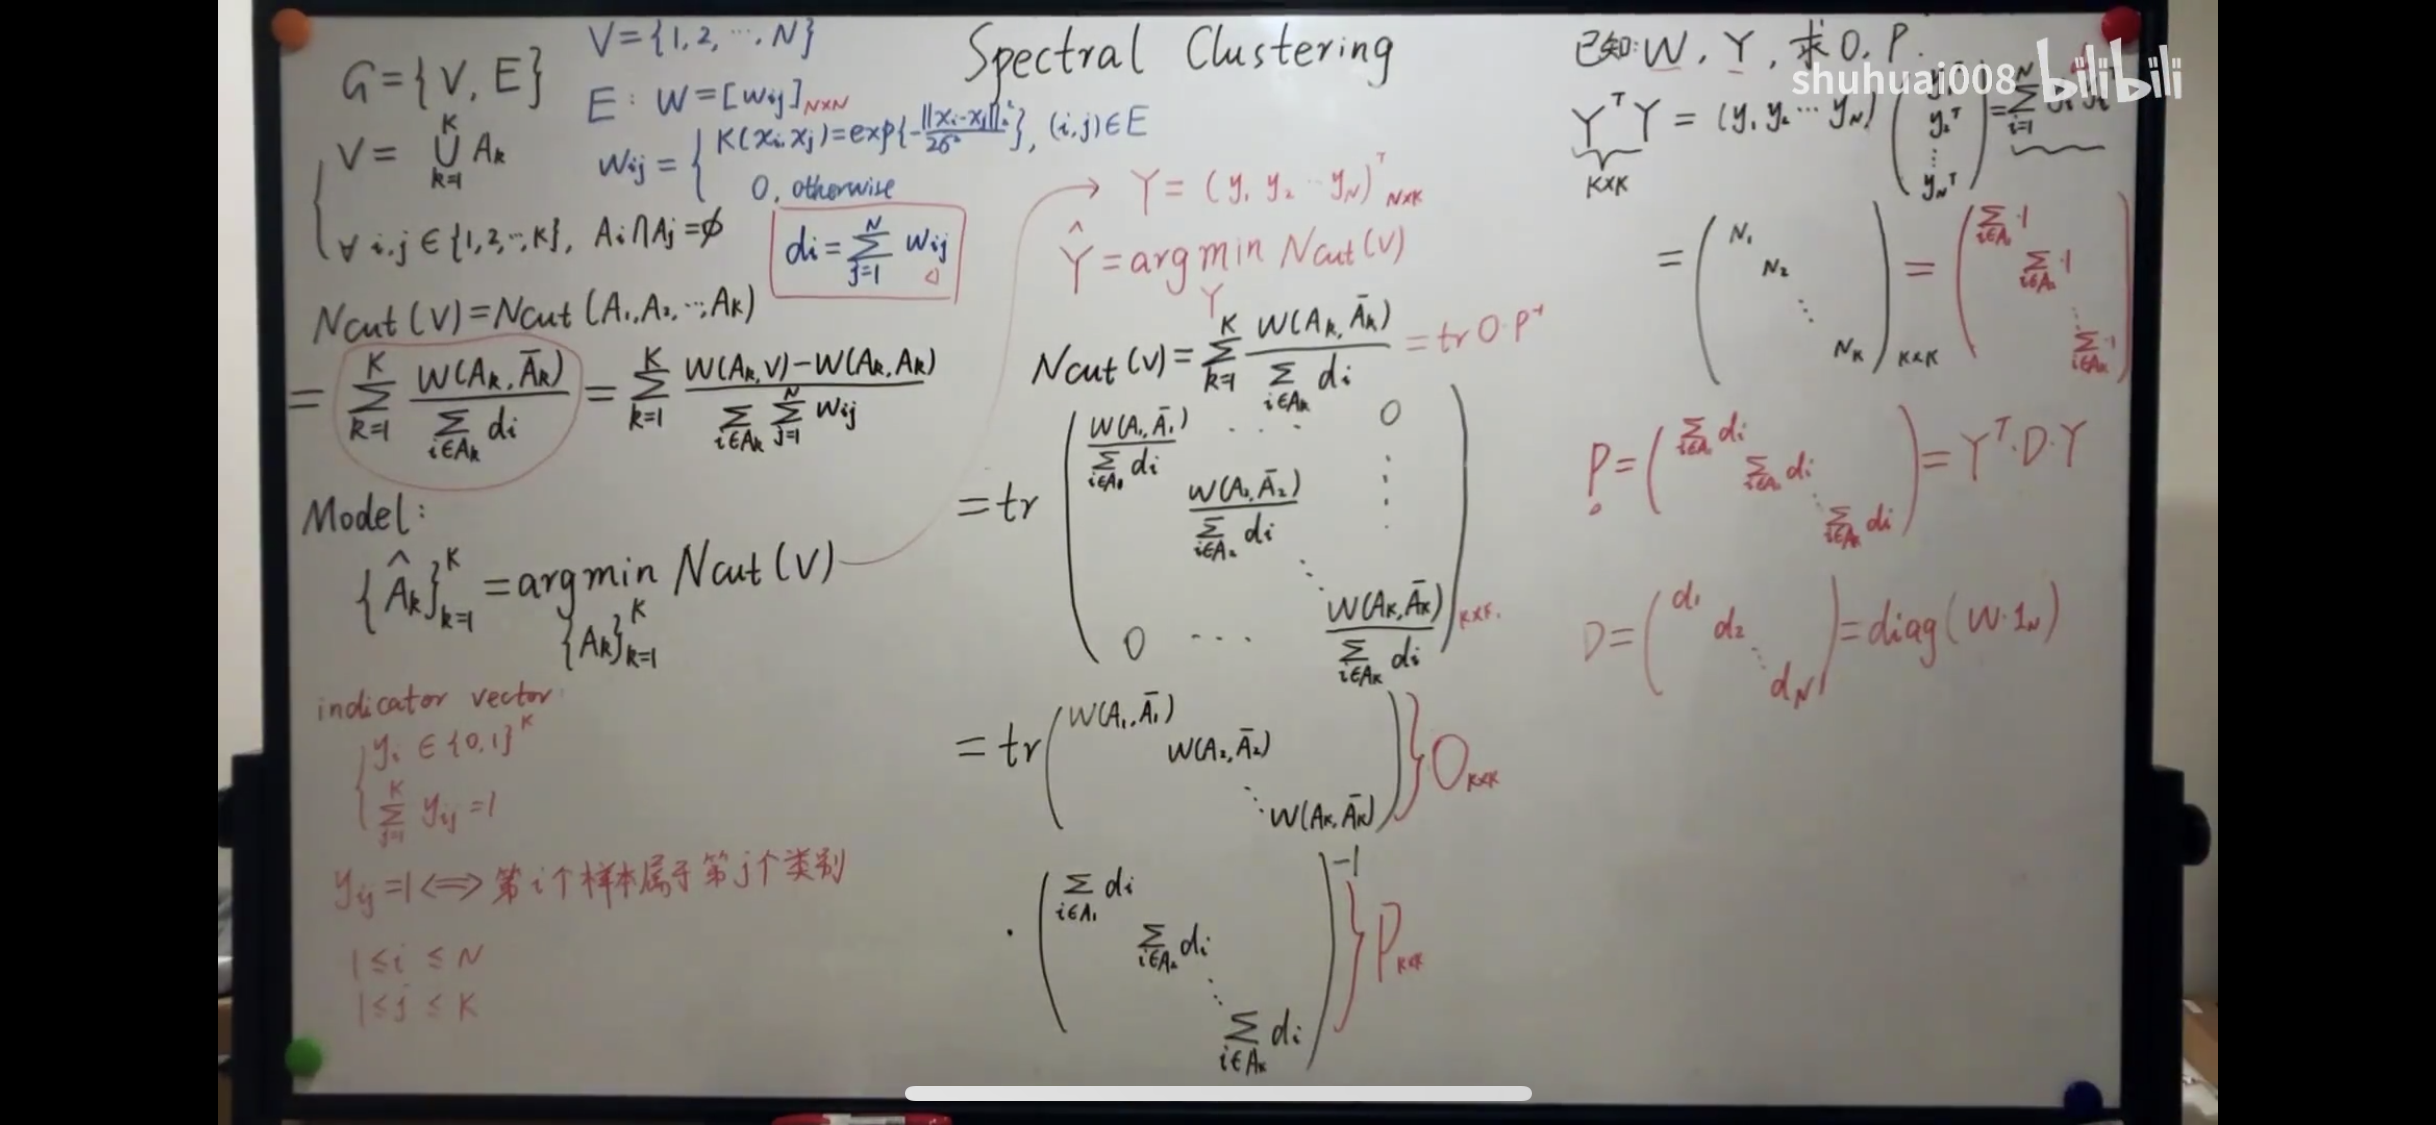 Spectral Clustering
G={V, E}
V={1,2,…,N}
E: W=[wij]N×N
V= ⋃_{k=1}^{K} Ak
wij = { K(xi,xj)=exp{-||xi-xj||₂²/2σ²}, (i,j)∈E
0, otherwise
∀ i,j ∈{1,2,…,K}, Ai∩Aj=∅
di = Σ_{j=1}^{N} wij
Ncut(V)=Ncut(A1,A2,…,AK)
= Σ_{k=1}^{K} W(Ak,Āk) / Σ_{i∈Ak} di = Σ_{k=1}^{K} (W(Ak,V)-W(Ak,Ak)) / Σ_{i∈Ak} Σ_{j=1}^{N} wij
Model:
{Âk}_{k=1}^{K} = argmin Ncut(V)
{Ak}_{k=1}^{K}
indicator vector:
yi ∈{0,1}^K
Σ_{j=1}^{K} yij =1
yij =1 ⇔ 第i个样本属于第j个类别
1≤i≤N
1≤j≤K
Y=(y1 y2 … yN)^T N×K
Ŷ=argmin Ncut(V)
Y
Ncut(V)= Σ_{k=1}^{K} W(Ak,Āk) / Σ_{i∈Ak} di = tr O·P⁻¹
=tr ( W(A1,Ā1)/Σ_{i∈A1} di … 0
W(A2,Ā2)/Σ_{i∈A2} di ⋮
⋱
0 … W(AK,ĀK)/Σ_{i∈AK} di ) K×K
=tr ( W(A1,Ā1)
W(A2,Ā2)
⋱ W(AK,ĀK) ) } O K×K
· ( Σ_{i∈A1} di
Σ_{i∈A2} di
⋱
Σ_{i∈AK} di )⁻¹ } P K×K
已知:W, Y, 求O, P.
shuhuai008 bilibili
Y^T Y = (y1 y2 … yN) ( y1^T
y2^T
⋮
yN^T ) = Σ_{i=1}^{N}
K×K
= ( N1
N2
⋱
NK ) K×K = ( Σ_{i∈A1} 1
Σ_{i∈A2} 1
⋱
Σ_{i∈AK} 1 )
P= ( Σ_{i∈A1} di
Σ_{i∈A2} di
⋱
Σ_{i∈AK} di ) = Y^T·D·Y
D= ( d1
d2
⋱
dN ) = diag(W·1N)